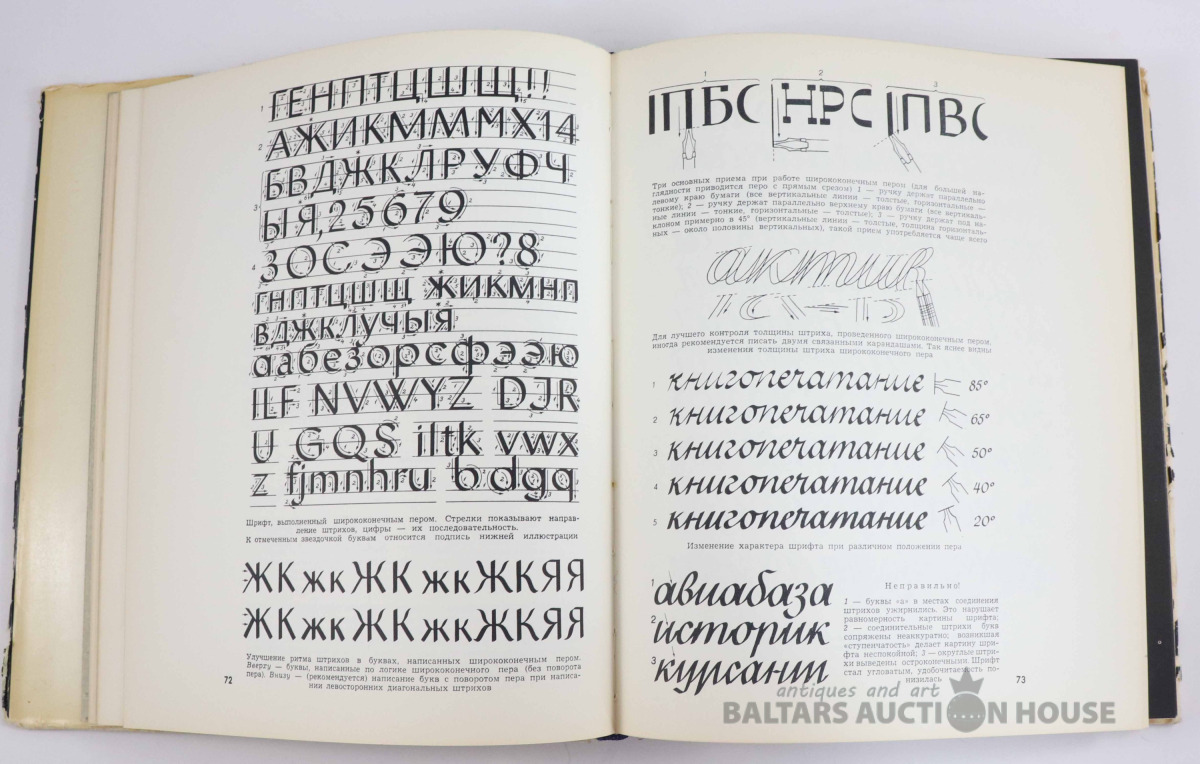 ГЕНПТЦШЩ!!
АЖИКМММХ14
БВДЖКЛРУФЧ
ЫЯ,25679
ЗОСЭЭЮ?8
ГНПТЦШЩ ЖИКМНП
ВДЖКЛУЧЫЯ
абезорсфээю
ILF NVWYZ DJR
U GQS iltk vwx
z fjmnhru bdgq
Шрифт, выполненный ширококонечным пером. Стрелки показывают направ-
ление штрихов, цифры — их последовательность.
К отмеченным звездочкой буквам относится подпись нижней иллюстрации
ЖК жк ЖК жк ЖКЯЯ
ЖК жк ЖК жк ЖКЯЯ
Улучшение ритма штрихов в буквах, написанных ширококонечным пером.
Вверху — буквы, написанные по логике ширококонечного пера (без поворота
пера). Внизу — (рекомендуется) написание букв с поворотом пера при написа-
нии левосторонних диагональных штрихов
72
1 2 3
ПБС НРС ПВС
Три основных приема при работе ширококонечным пером (для большей на-
глядности приводится перо с прямым срезом) 1 — ручку держат параллельно
левому краю бумаги (все вертикальные линии — толстые, горизонтальные —
тонкие); 2 — ручку держат параллельно верхнему краю бумаги (все вертикаль-
ные линии — тонкие, горизонтальные — толстые); 3 — ручку держат под на-
клоном примерно в 45° (вертикальные линии — толстые, толщина горизонталь-
ных — около половины вертикальных), такой прием употребляется чаще всего
Для лучшего контроля толщины штриха, проведенного ширококонечным пером,
иногда рекомендуется писать двумя связанными карандашами. Так яснее видны
изменения толщины штриха ширококонечного пера
1 книгопечатание 85°
2 книгопечатание 65°
3 книгопечатание 50°
4 книгопечатание 40°
5 книгопечатание 20°
Изменение характера шрифта при различном положении пера
1 авиабаза
2 историк
3 курсанты
Неправильно!
1 — буквы «а» в местах соединения
штрихов ужирнились. Это нарушает
равномерность картины шрифта;
2 — соединительные штрихи букв
сопряжены неаккуратно; возникшая
«ступенчатость» делает картину шри-
фта неспокойной; 3 — округлые штри-
хи выведены остроконечными. Шрифт
стал угловатым, удобочитаемость по-
низилась
73
antiques and art
BALTARS AUCTION HOUSE